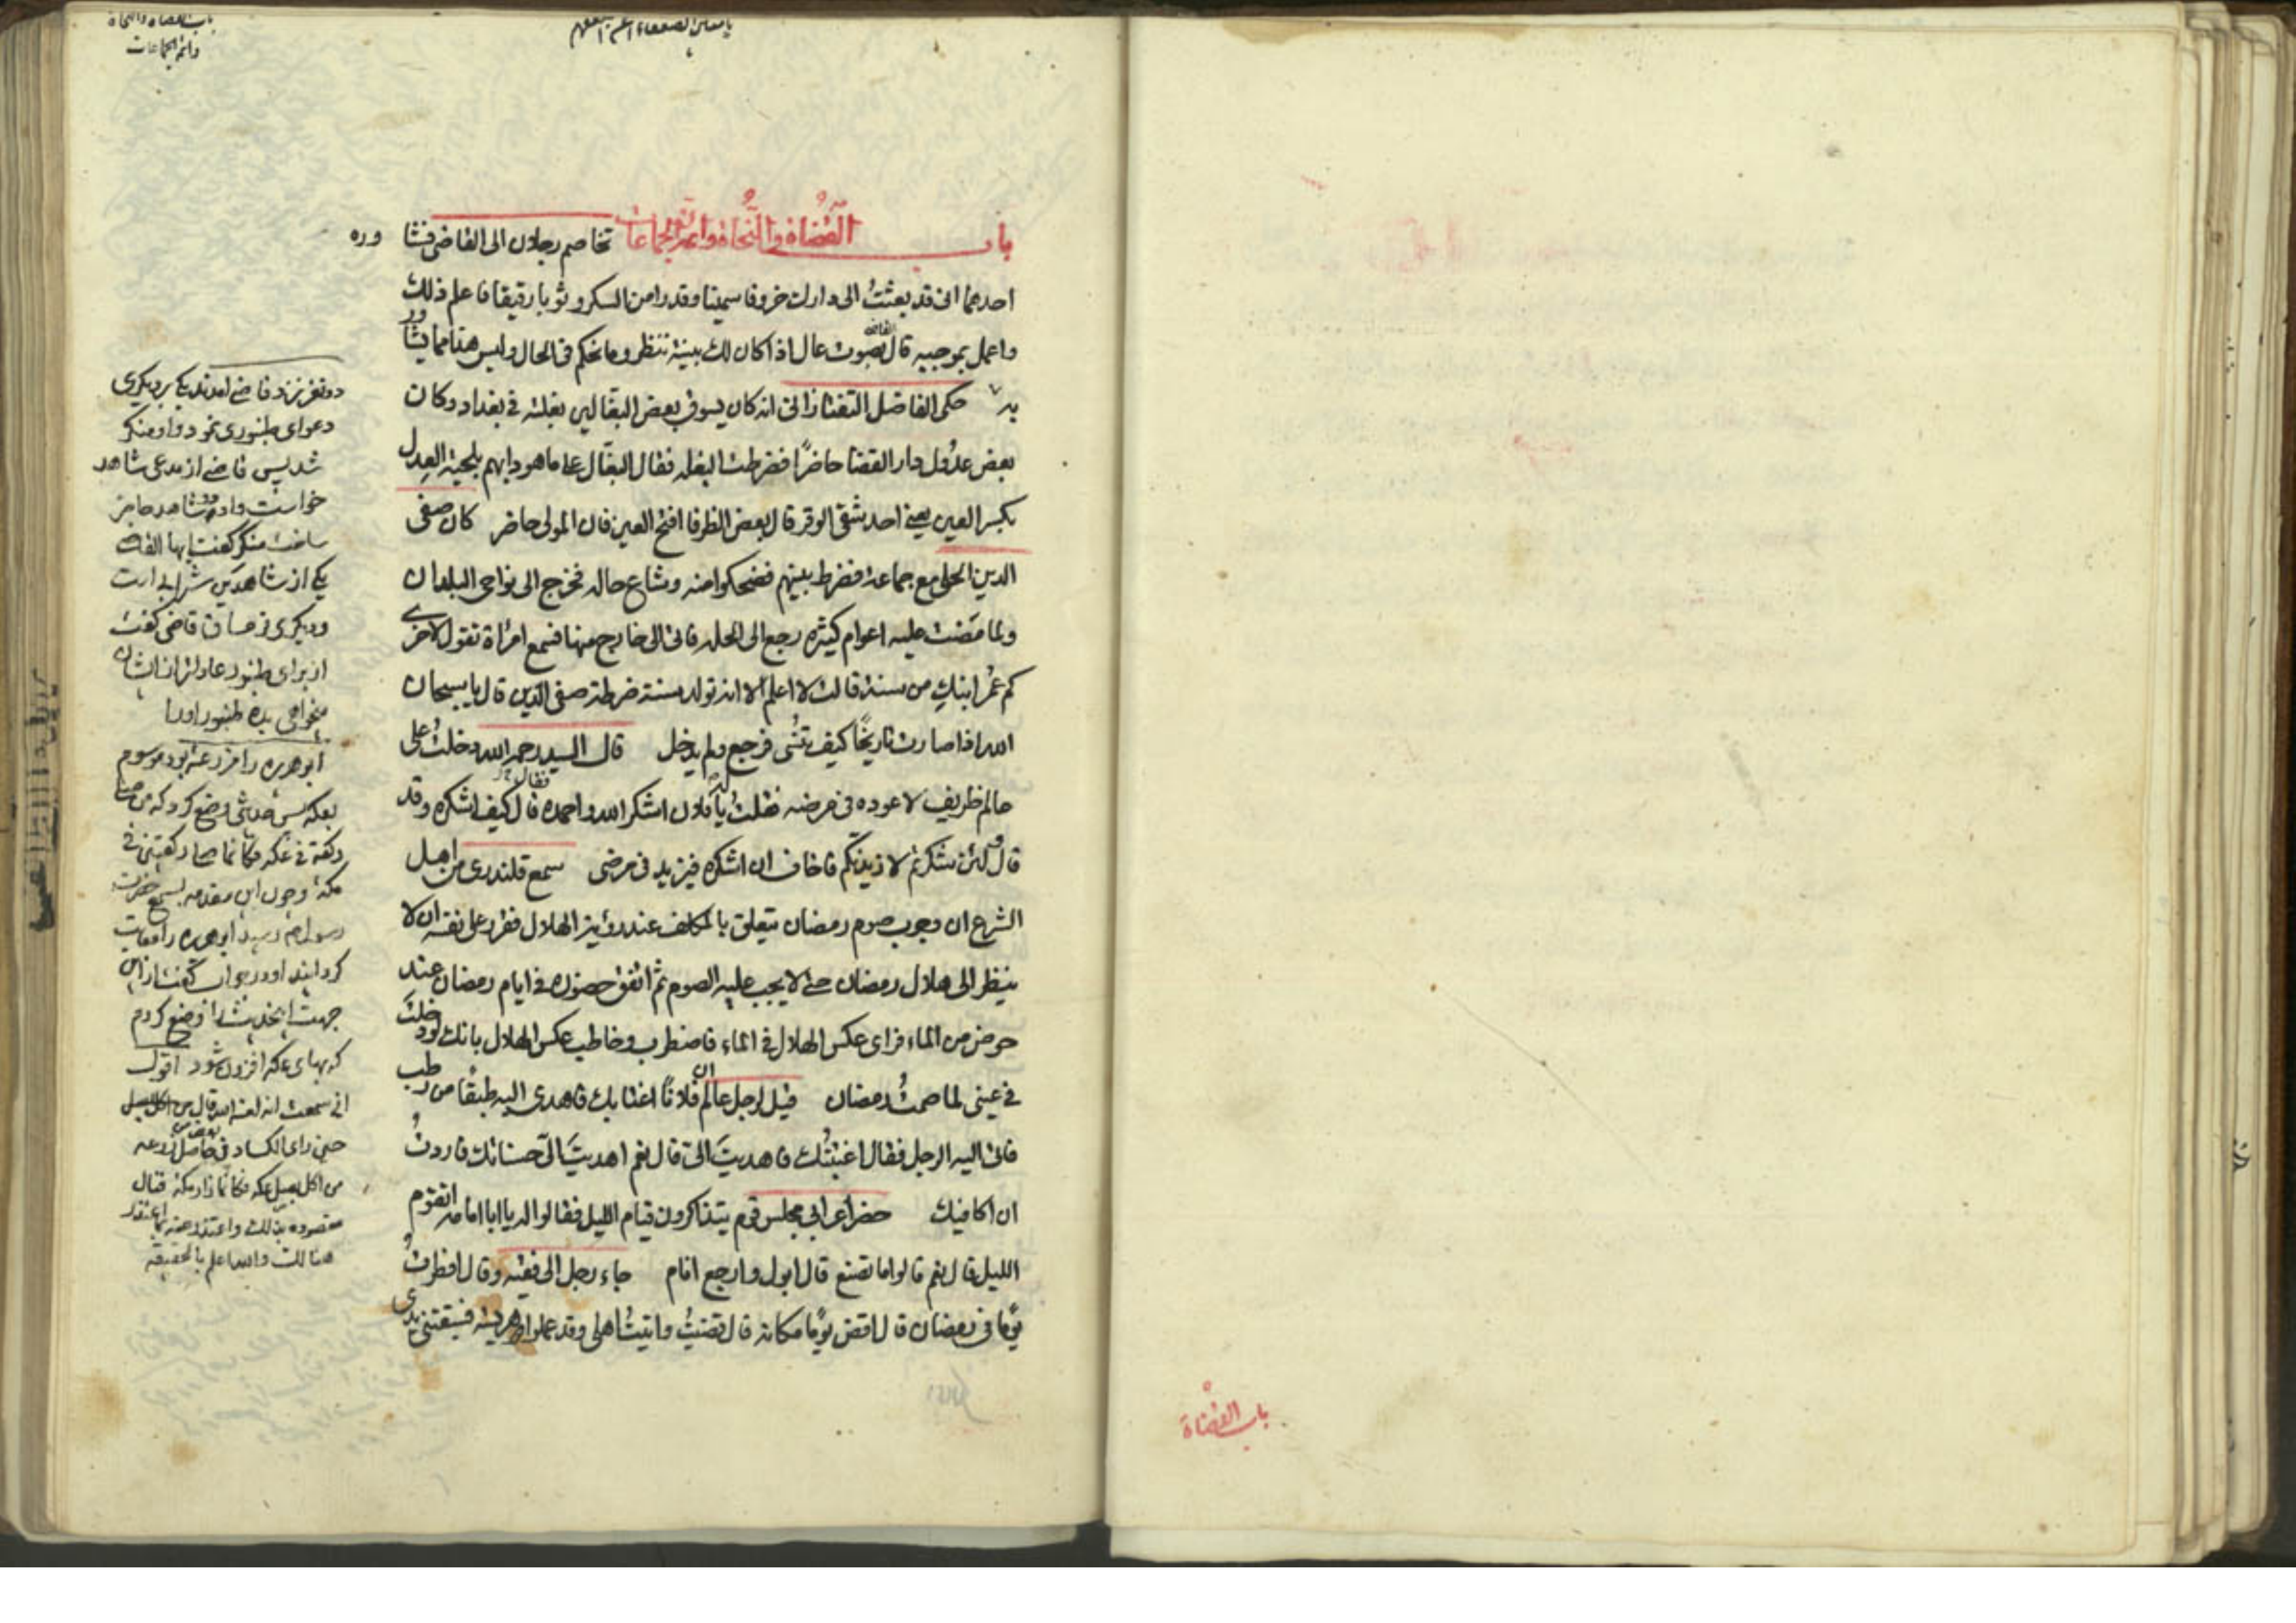 باب القضاة
باب القضاة والنحاة
وائمة الجماعات
باب القضاة والنحاة وائمة الجماعات تخاصم رجلان الى القاضى فشا وره
احدهما انى قد بعثت الى دارك خروفا سمينا وقدرا من السكر وثوبا رقيقا فاعلم ذلك
واعمل بموجبه قال القاضى بصوت عال اذا كان لك بينة ننظر وما نحكم فى الحال وليس هذا مما يشاور
به حكى الفاضل التفتازانى انه كان يسوق بعض البغالين بغلته فى بغداد وكان
بعض عدول دار القضا حاضرًا فضرطت البغله فقال البغال على ما هو دابهم بلحية العدل
بكسر العين يعنى احد شقى الوقر قال بعض الظرفا افتح العين فان المولى حاضر كان صفى
الدين الحلى مع جماعة فضرط بينهم فضحكوا منه وشاع حاله فخرج الى نواحى البلدان
ولما مضت عليه اعوام كثيره رجع الى الحله فاتى الى خارج منها فسمع امراة تقول لاخرى
كم عمر ابنك من سنة قالت لا اعلم الا انه تولد سنة ضرطة صفى الدين قال يا سبحان
الله اذا صارت تاريخًا كيف تنسى فرجع ولم يدخل قال السيد رحمه الله دخلت على
عالم ظريف لاعوده فى مرضه فقلت له يا فلان اشكر الله واحمده فقال كيف اشكره وقد
قال لئن شكرتم لازيدنكم فاخاف ان اشكره فيزيد فى مرضى سمع قلندرى من اهل
الشرع ان وجوب صوم رمضان يتعلق بالمكلف عند رؤية الهلال فقرر على نفسه ان لا
ينظر الى هلال رمضان حتى لا يجب عليه الصوم ثم اتفق حضوره فى ايام رمضان عند
حوض من الماء فراى عكس الهلال فى الماء فاضطرب وخاطب عكس الهلال بانك لو دخلت
فى عينى لما صمت رمضان قيل لرجل عالم ان فلانًا اغتابك فاهدى اليه طبقًا من رطب
فاتى اليه الرجل فقال اغتبتك فاهديت الى قال نعم اهديت الى حسناتك فاردت
ان اكافيك حضر اعرابى مجلس قوم يتذاكرون قيام الليل فقالوا له يا ابا امامه اتقوم
الليل قال نعم قالوا ما تصنع قال ابول وارجع انام جاء رجل الى فقيه وقال افطرت
يومًا فى رمضان قال اقض يومًا مكانه قال قضيت واتيت اهلى وقد عملوا هريسة فسبقتنى يدى
دو نفر نزد قاضى امدند يكى بر ديكرى
دعواى طنبورى نمود واو منكر
شد پس قاضى از مدعى شاهد
خواست واو دو شاهد حاضر
ساخت منكر كفت ايها القاضى
يكى از شاهدين شرابدار است
وديكرى رقاص قاضى كفت
از براى طنبور عادلتر از ايشان
ميخواهى بده طنبور اورا
ابو هريره را مزرعه بود موسوم
بعكه پس حديثى وضع كرد كه من صلى
ركعة فى عكه فكانما صلى ركعتين فى
مكة وچون اين مقدمه بسمع حضرت
رسول رسيد ابو هريره را معاتب
كردانيد او در جواب كفت از اين
جهت اينحديث را وضع كردم
كه بهاى عكه افزون شود اقول
انى سمعت انه لعنه الله قال من اكل بصل
حين راى الكساد فى حاصل زرعه
من اكل بصل عكه فكانما زار مكه فقال
مقصوده بذلك واعتذر عنه بما اعتذر
هنالك والله اعلم بالحقيقه